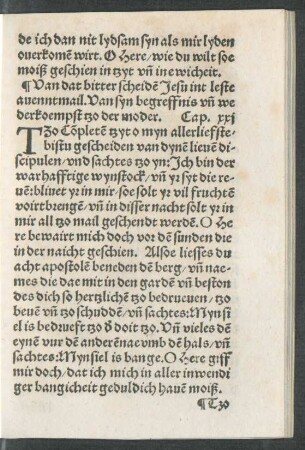 de ich dan nit lydsam syn als mir lyden
ouerkomē wirt. O Here/ wie du wilt soe
moiß geschien in tzyt vn̄ in ewicheit.
¶ Van dat bitter scheidē Jesu int leste
auenntmail. Van syn begreffnis vn̄ we
derkoempst tzo der moder. Cap. xxj
TZo Cōpletē tzyt o myn allerliefste-
bistu gescheiden van dynē lieuē di-
scipulen/ vnd sachtes tzo yn: Ich bin der
warhafftige wynstock/ vn̄ yr syt die re-
ue: bliuet yr in mir/ soe solt yr vil fruchtē
voirtbrengē/ vn̄ in disser nacht solt yr in
mir all tzo mail geschendt werdē. O He
re bewairt mich doch vor dē sunden die
in der naicht geschien. Alsoe liesses du
acht apostolē beneden dē berg/ vn̄ nae-
mes die dae mit in den gardē vn̄ beston
des dich so hertzlichē tzo bedrucuen/ tzo
beuē vn̄ tzo schuddē/ vn̄ sachtes: Mynsiel
is bedrueft tzo d̄ doit tzo. Vn̄ vieles dē
eynē vur dē anderē nae vmb dē hals/ vn̄
sachtes: Mynsiel is bange. O Here giff
mir doch/ dat ich mich in aller inwendi
ger bangicheit geduldich hauē moiß.
¶ Tzo